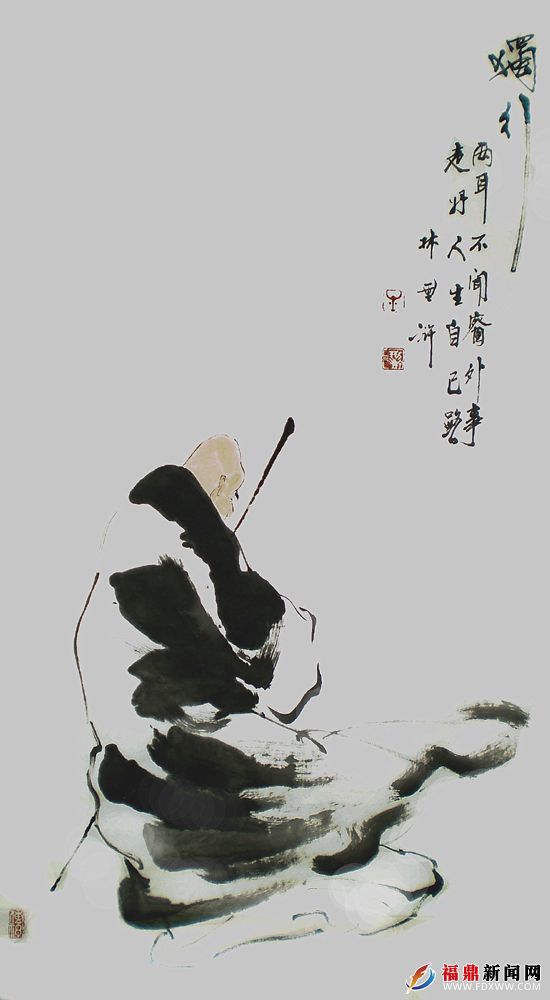 獨行
两耳不闻窗外事
走好人生自己路
林
福鼎新闻网
WWW.FDXWW.COM